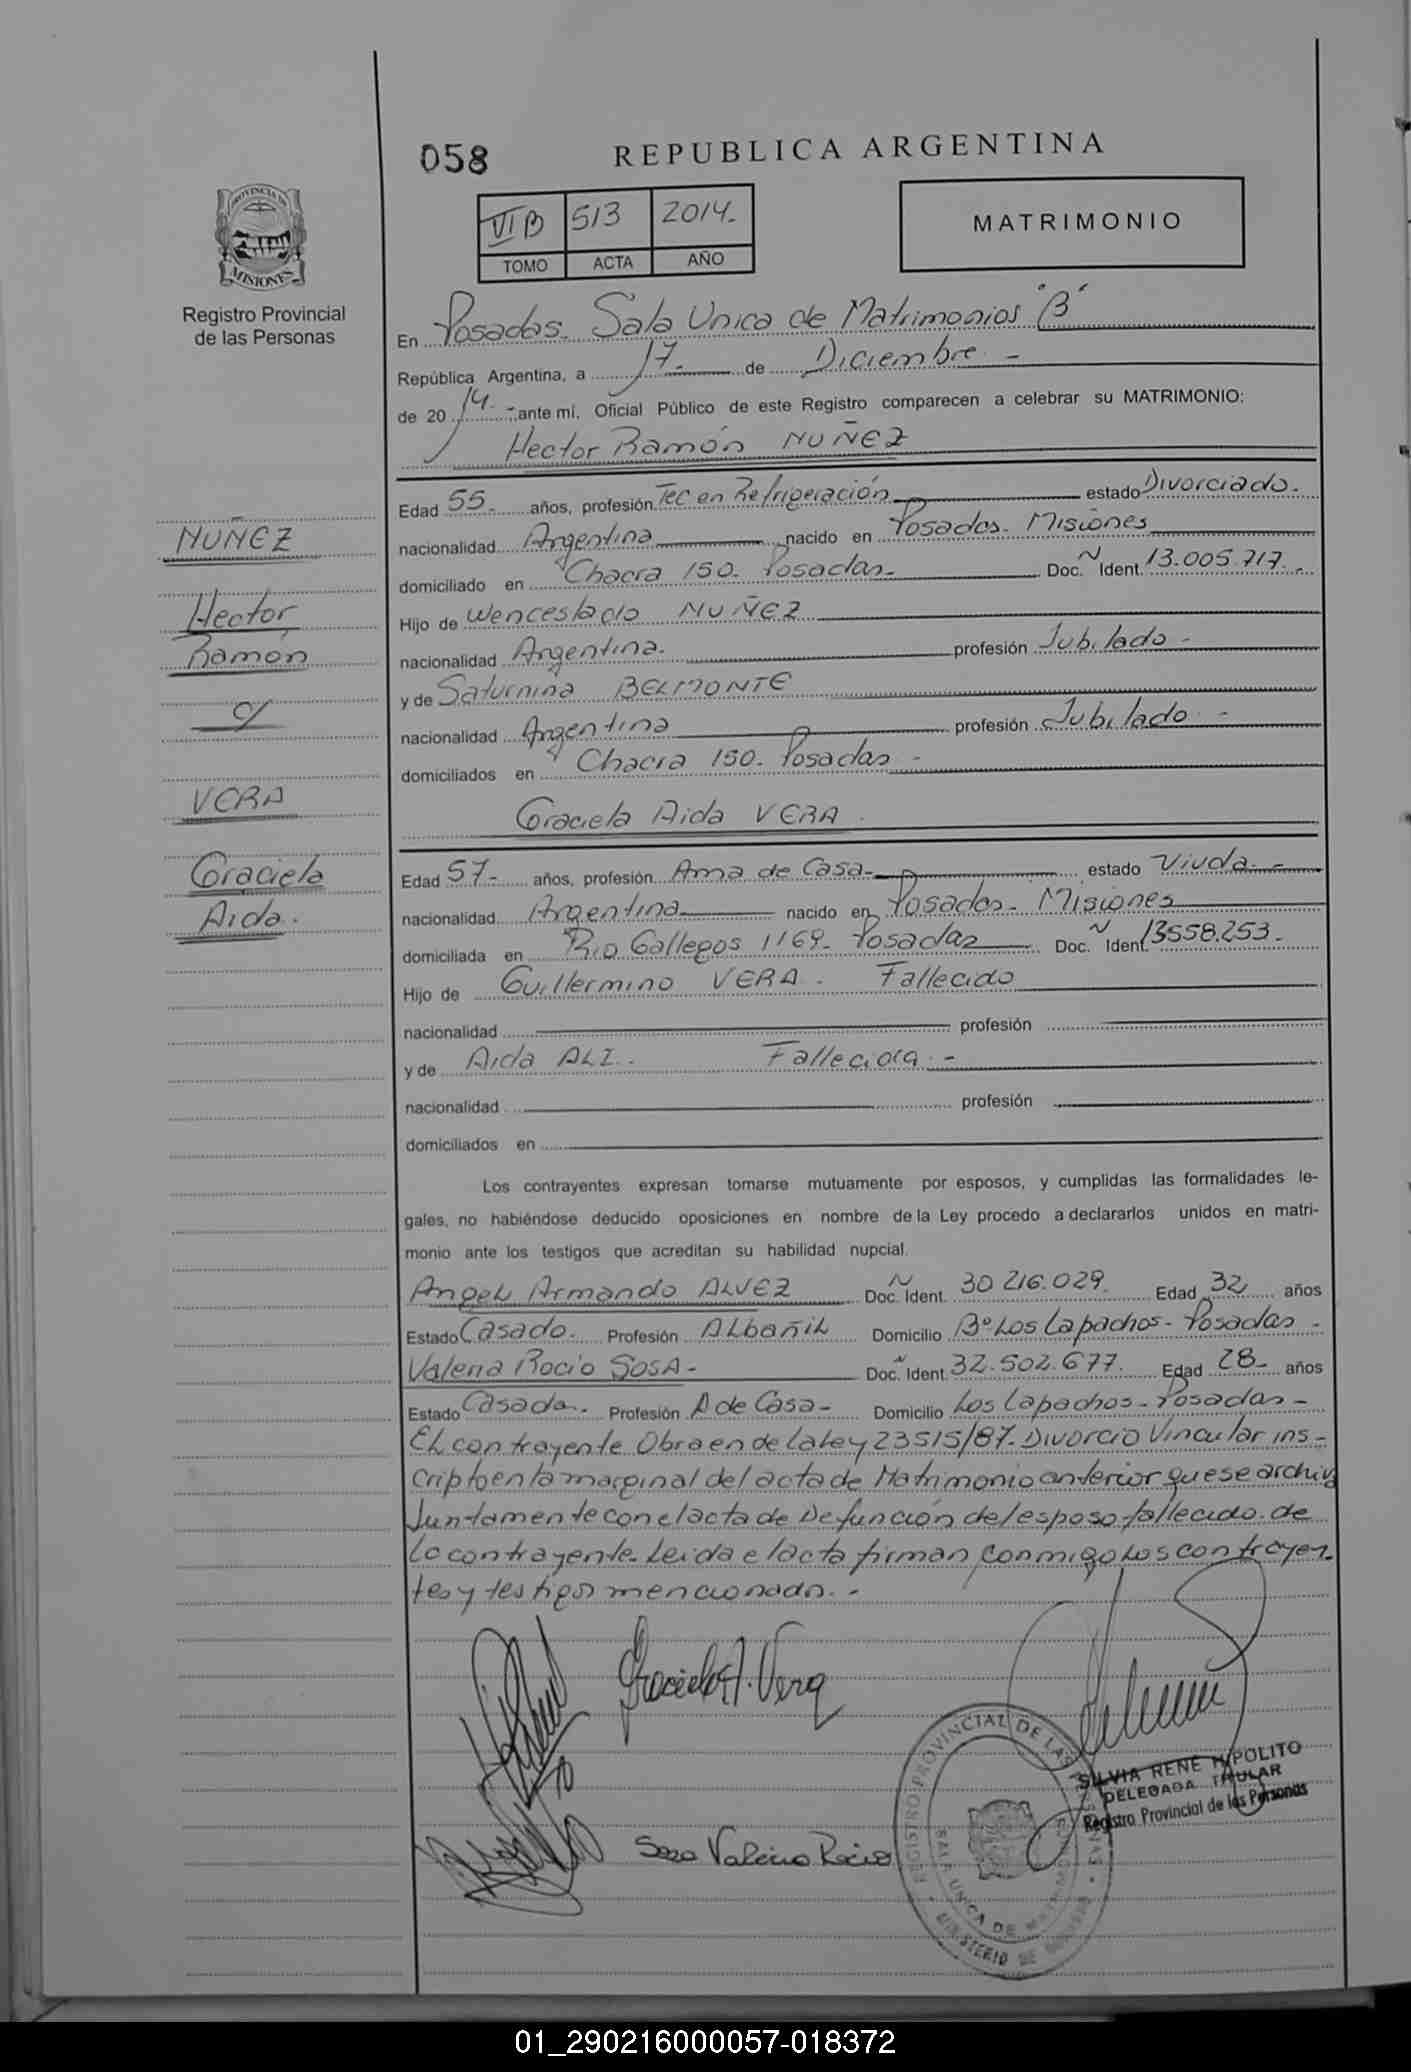 058
REPUBLICA ARGENTINA
PROVINCIA DE
MISIONES
Registro Provincial
de las Personas
VI B 513 2014.-
TOMO ACTA AÑO
MATRIMONIO
En Posadas. Sala Unica de Matrimonios "B"
República Argentina, a 17.- de Diciembre.-
de 20 14.- ante mí, Oficial Público de este Registro comparecen a celebrar su MATRIMONIO:
Hector Ramón NUÑEZ
Edad 55.- años, profesión Tec en Refrigeración estado Divorciado.
nacionalidad Argentina nacido en Posadas. Misiones
domiciliado en Chacra 150. Posadas.- Doc. N Ident. 13.005.717.-
Hijo de Wenceslado NUÑEZ
nacionalidad Argentina. profesión Jubilado.-
y de Saturnina BELMONTE
nacionalidad Argentina profesión Jubilado.-
domiciliados en Chacra 150. Posadas.-
Graciela Aida VERA.
Edad 57.- años, profesión Ama de Casa.- estado Viuda.-
nacionalidad Argentina nacido en Posadas. Misiones
domiciliada en Rio Gallegos 1169. Posadas Doc. N Ident. 13558.253.-
Hijo de Guillermino VERA. Fallecido
nacionalidad profesión
y de Aida ALI. Fallecida.-
nacionalidad profesión
domiciliados en
Los contrayentes expresan tomarse mutuamente por esposos, y cumplidas las formalidades le-
gales, no habiéndose deducido oposiciones en nombre de la Ley procedo a declararlos unidos en matri-
monio ante los testigos que acreditan su habilidad nupcial.
Angel Armando ALVEZ Doc. N Ident. 30 216.029. Edad 32 años
Estado Casado. Profesión ALbañiL Domicilio Bº Los Lapachos - Posadas.-
Valeria Rocio SOSA- Doc. N Ident. 32.502.677. Edad 28- años
Estado Casada. Profesión A de Casa- Domicilio Los Lapachos - Posadas.-
EL contrayente Obra en de la Ley 23515/87. Divorcio Vincular ins-
cripto en la marginal del acta de Matrimonio anterior que se archiva
Juntamente con el acta de Defunción del esposo fallecido de
la contrayente. Leida el acta firman conmigo Los contrayen-
tes y testigos mencionado.-
NUÑEZ
Hector
Ramón
c/
VERA
Graciela
Aida.
Graciela A. Vera
Sosa Valeria Rocio
REGISTRO PROVINCIAL DE LAS PERSONAS
SALA UNICA DE MATRIMONIOS
MINISTERIO DE GOBIERNO
SILVIA RENE HIPOLITO
DELEGADA TITULAR
Registro Provincial de las Personas
01_290216000057-018372